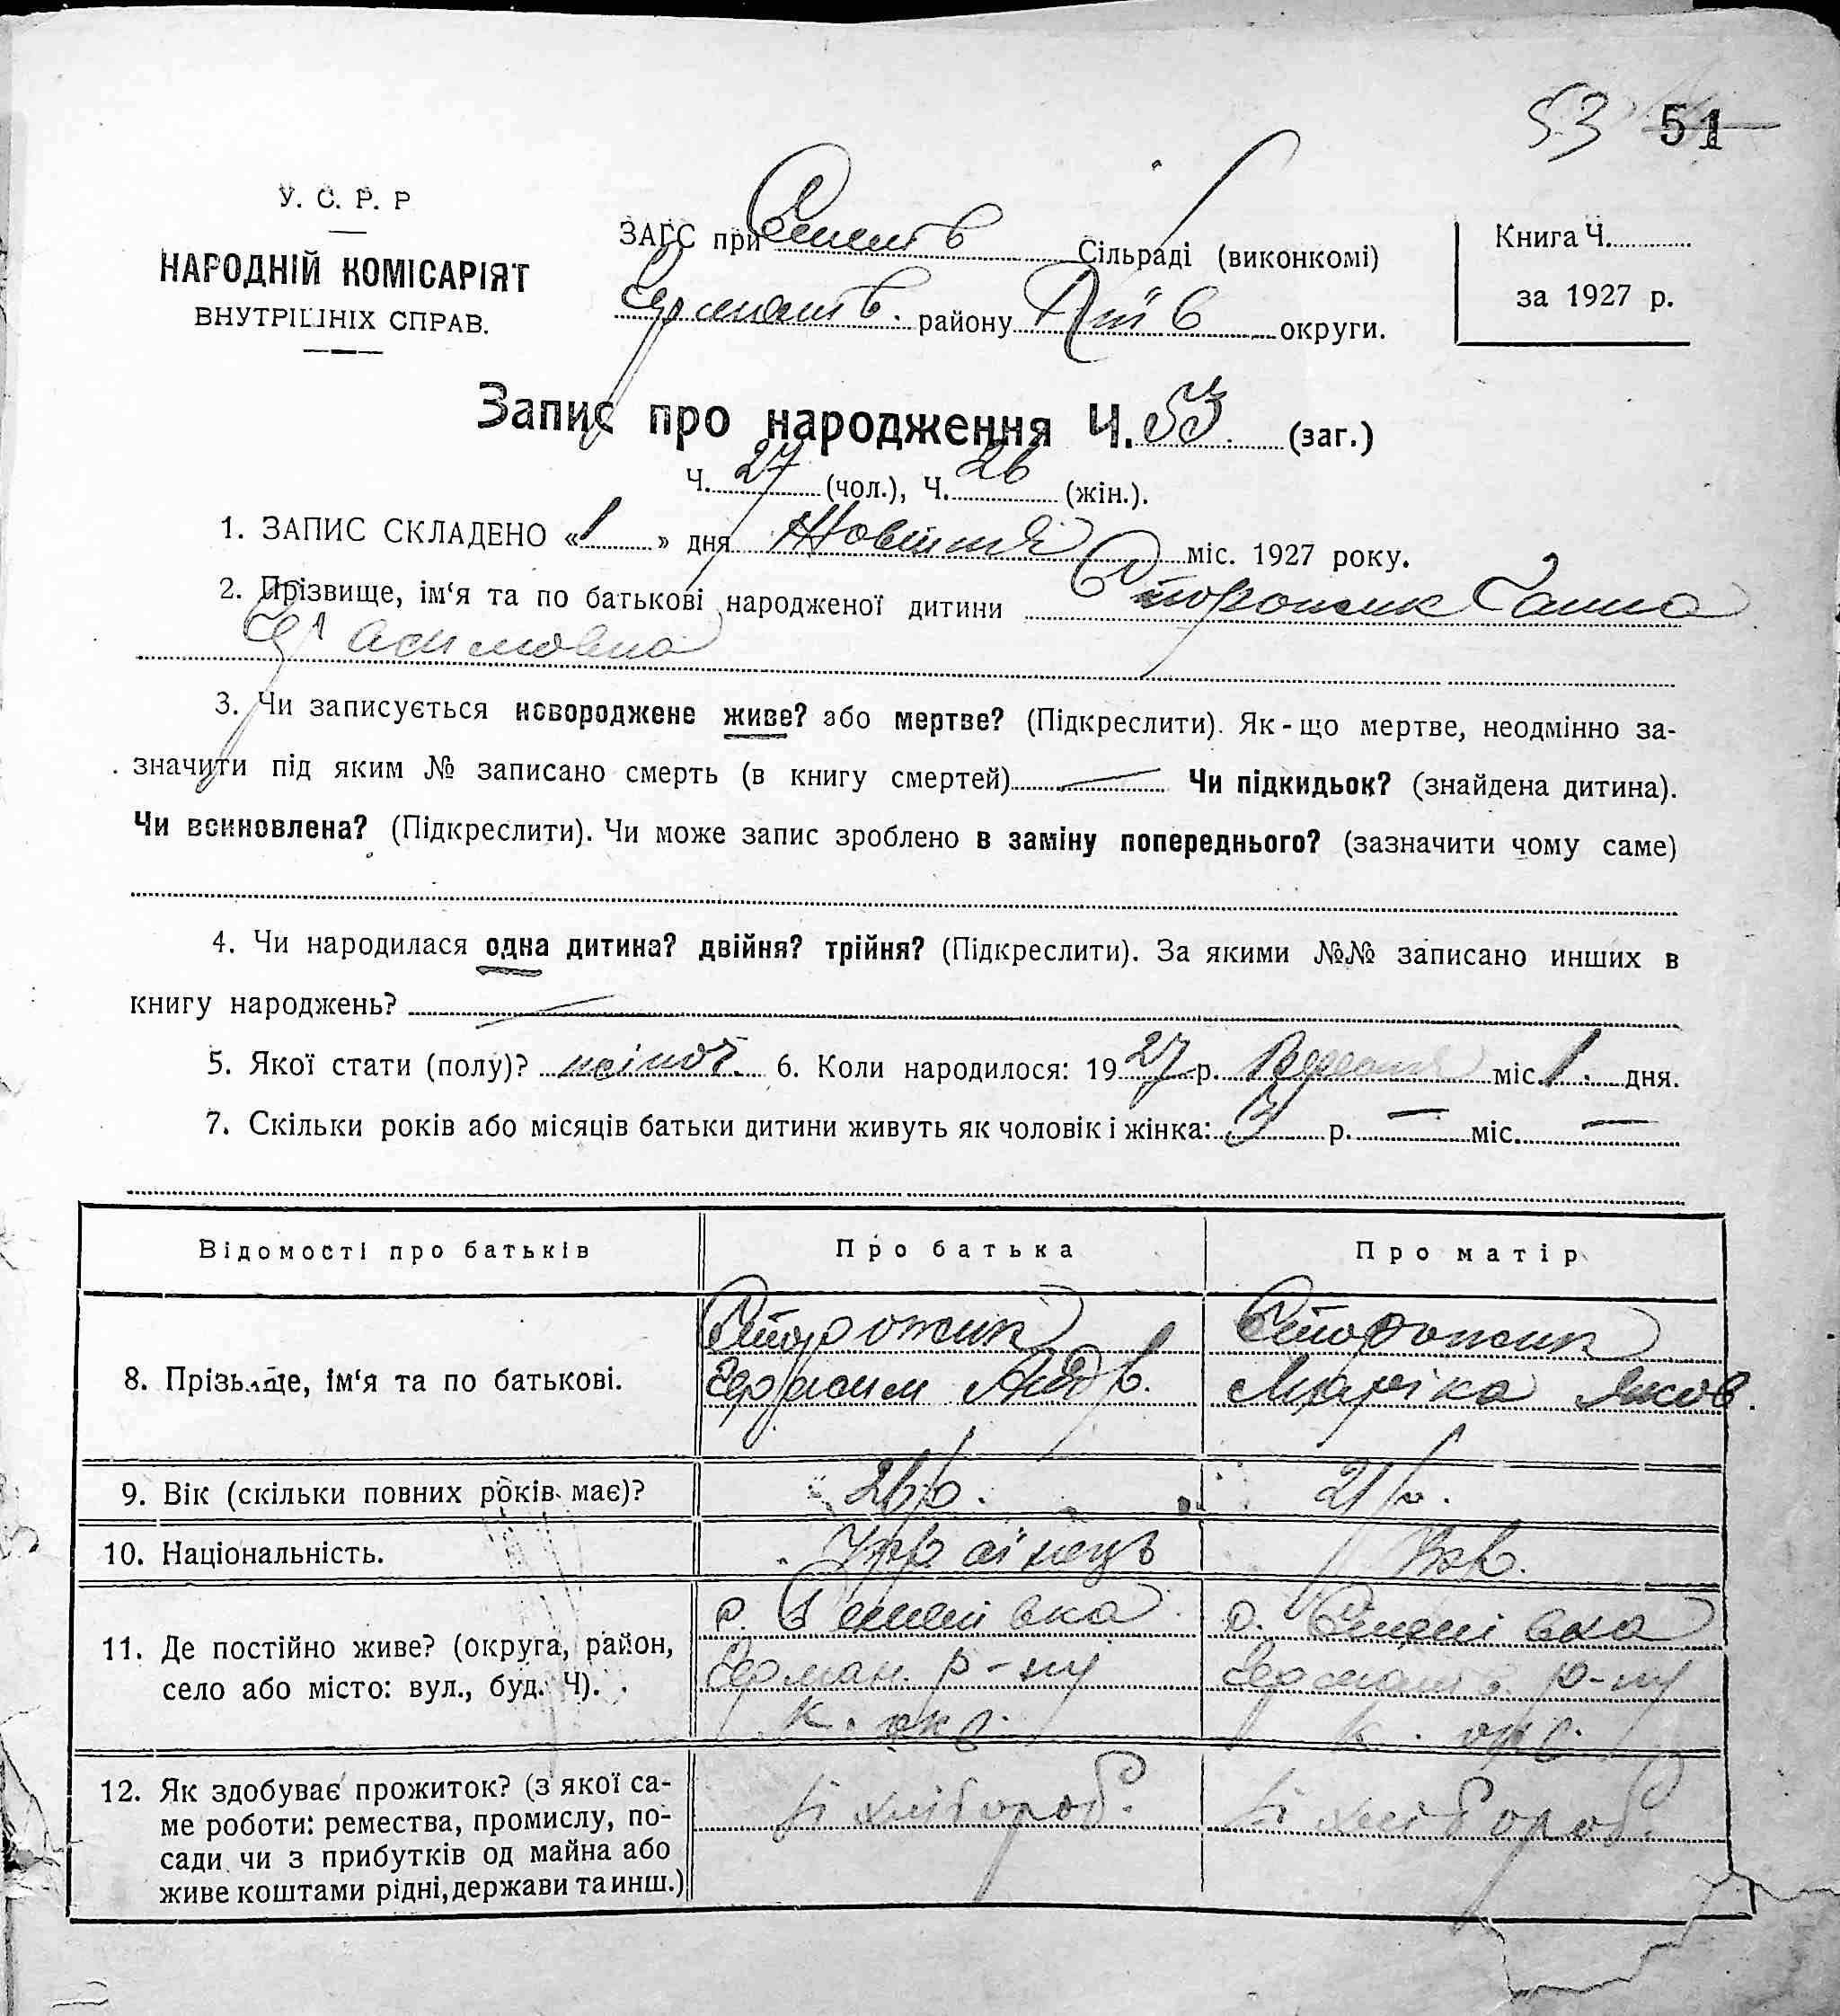 53 51
У. С. Р. Р
НАРОДНІЙ КОМІСАРІЯТ
ВНУТРІШНІХ СПРАВ.
ЗАГС при Семенів Сільраді (виконкомі)
Германів. району Київ округи.
Книга Ч.
за 1927 р.
Запис про народження Ч. 53 (заг.)
Ч. 27 (чол.), Ч. 26 (жін.).
1. ЗАПИС СКЛАДЕНО «1» дня Жовтня міс. 1927 року.
2. Прізвище, ім‘я та по батькові народженої дитини Сторожик Ганна
Герасимовна
3. Чи записується новороджене живе? або мертве? (Підкреслити). Як-що мертве, неодмінно за-
значити під яким № записано смерть (в книгу смертей) Чи підкидьок? (знайдена дитина).
Чи всиновлена? (Підкреслити). Чи може запис зроблено в заміну попереднього? (зазначити чому саме)
4. Чи народилася одна дитина? двійня? трійня? (Підкреслити). За якими №№ записано инших в
книгу народжень?
5. Якої стати (полу)? жіноч. 6. Коли народилося: 1927 р. Вересня міс. 1. дня.
7. Скільки років або місяців батьки дитини живуть як чоловік і жінка: 3 р. — міс. —
Відомості про батьків Про батька Про матір
8. Прізвище, ім‘я та по батькові.
Сторожик
Герасим Андр.
Сторожик
Маріка Яков.
9. Вік (скільки повних років має)? 26 р. 21 р.
10. Національність. Українець Укр.
11. Де постійно живе? (округа, район,
село або місто: вул., буд. Ч).
с. Семенівка
Герман. р-ну
К. окр.
с. Семенівка
Германів. р-ну
К. окр.
12. Як здобуває прожиток? (з якої са-
ме роботи: ремества, промислу, по-
сади чи з прибутків од майна або
живе коштами рідні, держави та инш.)
хлібороб.
хлібороб.